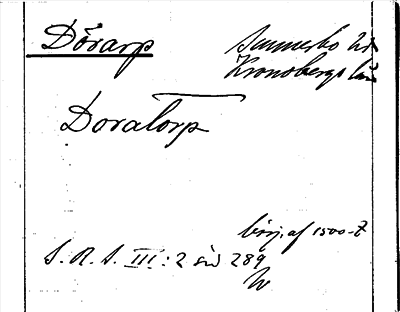 Dörarp
Sunnerbo hd
Kronobergs län
Doratorp
börj. af 1500-t
S. R. S. III: 2 sid 289